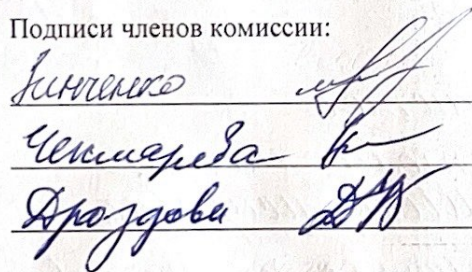 Подписи членов комиссии:
Зинченко
Чекмарева
Дроздова